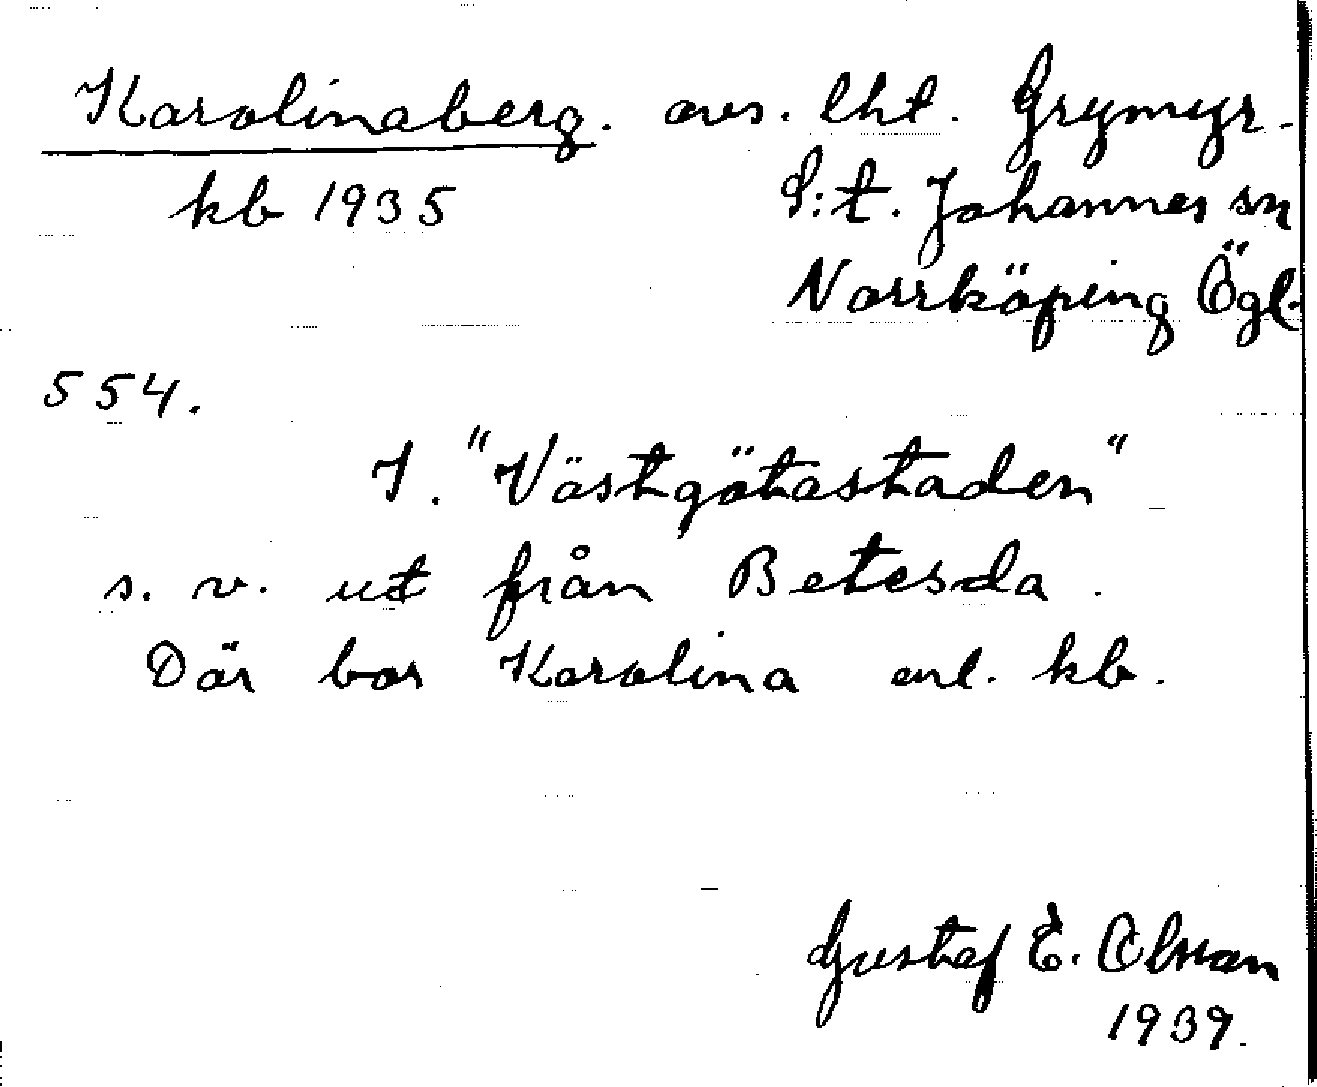 Karolinaberg. avs. lht. Grymyr.
kb 1935 S:t. Johannes sn
Norrköping Ögl.
554.
I. "Västgötastaden"
s. v. ut från Betesda.
Där bor Karolina enl. kb.
Gustaf E. Olsson
1939.